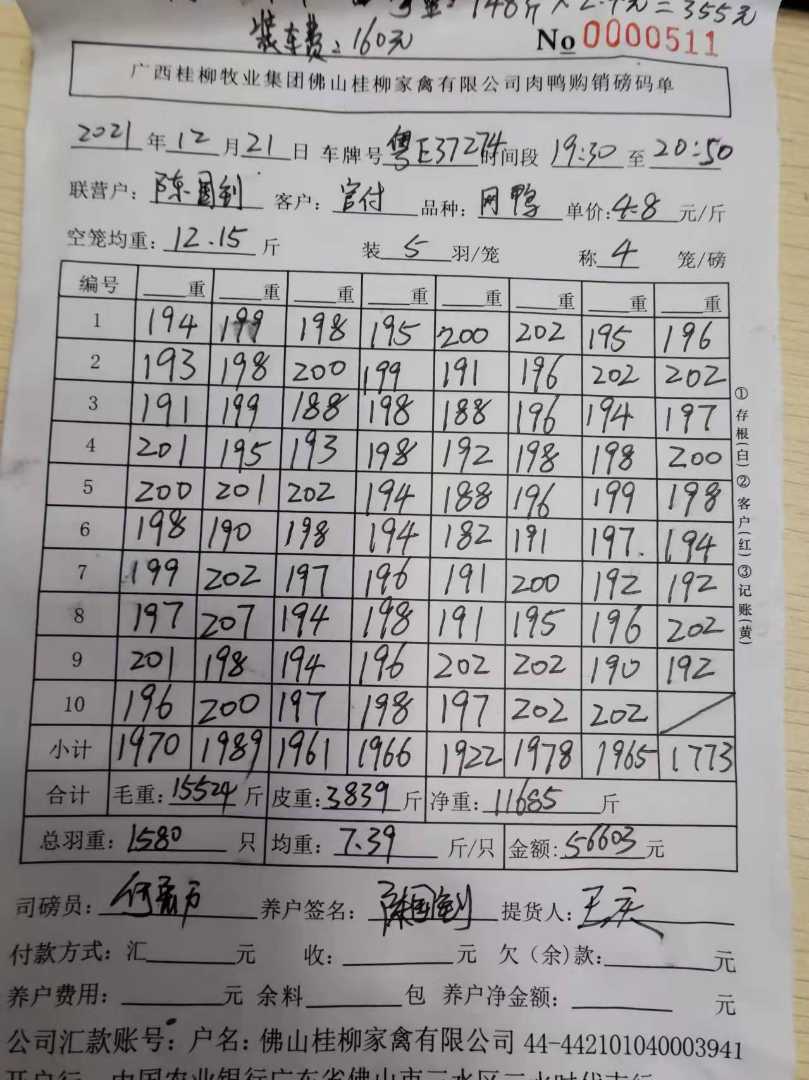 148斤×2.4元=355元
装车费:160元
No 0000511
广西桂柳牧业集团佛山桂柳家禽有限公司肉鸭购销磅码单
2021年12月21日 车牌号粤E37274时间段 19:30至20:50
联营户:陈国钊 客户:官付 品种:网鸭 单价:4.8元/斤
空笼均重:12.15斤 装5羽/笼 称4笼/磅
编号 重 重 重 重 重 重 重 重
1 194 199 198 195 200 202 195 196
2 193 198 200 199 191 196 202 202
3 191 199 188 198 188 196 194 197
4 201 195 193 198 192 198 198 200
5 200 201 202 194 188 196 199 198
6 198 190 198 194 182 191 197. 194
7 199 202 197 196 191 200 192 192
8 197 207 194 198 191 195 196 202
9 201 198 194 196 202 202 190 192
10 196 200 197 198 197 202 202
小计 1970 1989 1961 1966 1922 1978 1965 1773
合计 毛重:15524斤 皮重:3839斤 净重:11685斤
总羽重:1580只 均重:7.39斤/只 金额:56603元
司磅员: 养户签名:陈国钊 提货人:王庆
付款方式:汇 元 收: 元 欠(余)款: 元
养户费用: 元 余料 包 养户净金额: 元
公司汇款账号:户名:佛山桂柳家禽有限公司 44-442101040003941
开户行:中国农业银行广东省佛山市三水区三水时代支行
①存根(白)②客户(红)③记账(黄)